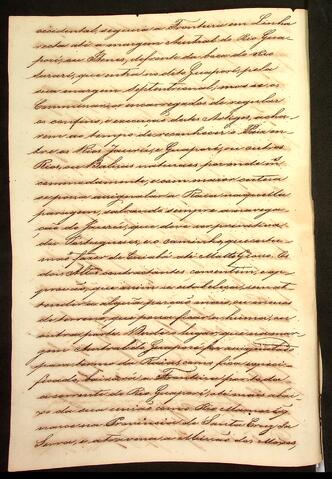 occidental, seguirá a Fronteira em Linha
recta até a margem Austral do Rio Gua-
poré, ou Itenes, defronte da boca do Rio
Sararé, que entra no dito Guaporé, pela
sua margem Septentrional, mas se os
Commissarios encarregados de regular
os confins, e execução destes Artigos, acha-
rem ao tempo de reconhecer o Paiz en-
tre os Rios Jaurú, e Guaporé, ou outros
Rios, ou Balizas naturaes por onde mais
commodamente, e com maior certeza
se possa assignalar a Raia naquella
paragem, salvando sempre a navega-
ção do Jaurú, que deve ser privativa
dos Portuguezes, e o caminho, que costu-
mão fazer do Cuiabá até Matto grosso. Os
dois Altos contratantes consentem, e ap-
provão, que assim se estabeleça, sem at-
tender a alguma porção mais, ou menos
de terreno, que possa ficar a huma, ou
a outra parte. Desde o lugar, que na mar-
gem Austral do Guaporé for assignalado
para termo da Raia, como fica expli-
cado, baixará a Fronteira por todo
a corrente do Rio Guaporé, até mais abai-
xo da sua união com o Rio Mamoré, q
nasce na Provincia de Santa Cruz da
Serra, e atravessa a Missão dos Moxos,